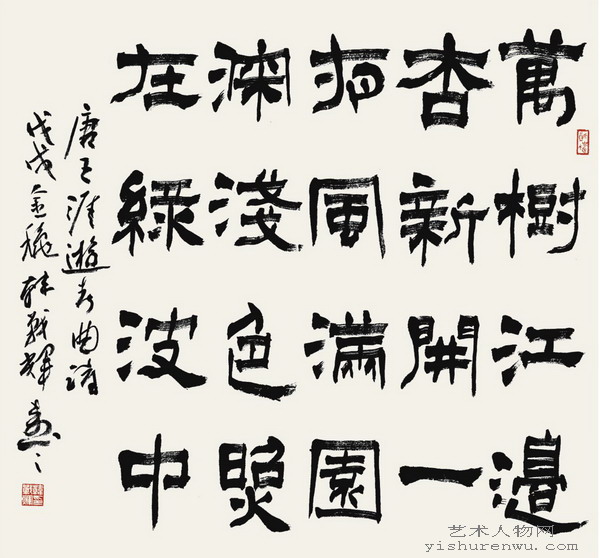 萬樹江邊
杏新開一
夜風滿園
深淺色照
在綠波中
唐王涯遊春曲詩
戊戌金穐韓戰輝書
艺术人物网
yishurenwu.com